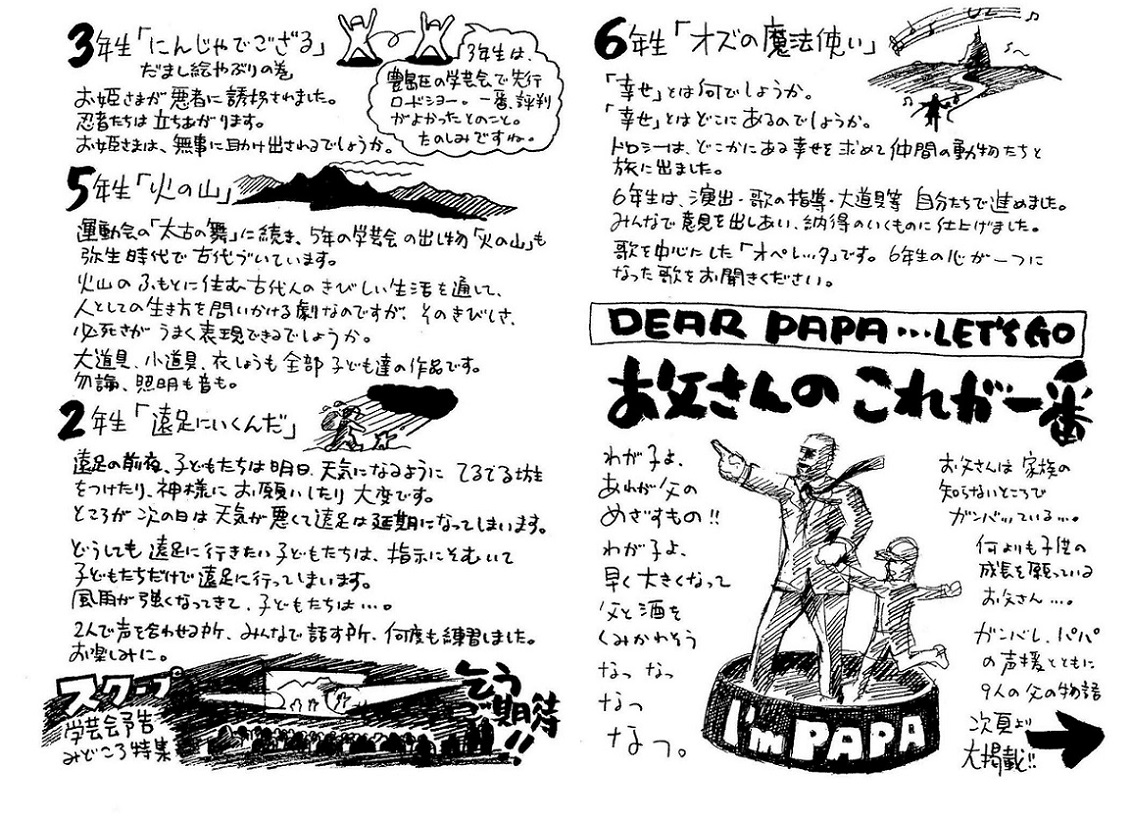 3年生「にんじゃでござる」
だまし絵やぶりの巻
お姫さまが悪者に誘拐されました。
忍者たちは立ちあがります。
お姫さまは、無事に助け出されるでしょうか。
3年生は、
豊島区の学芸会で先行
ロードショー。一番、評判
がよかったとのこと。
たのしみですね。
5年生「火の山」
運動会の「太古の舞」に続き、5年の学芸会の出し物「火の山」も
弥生時代で古代づいています。
火山のふもとに住む古代人のきびしい生活を通して、
人としての生き方を問いかける劇なのですが、そのきびしさ、
必死さがうまく表現できるでしょうか。
大道具、小道具、衣しょうも全部子ども達の作品です。
勿論、照明も音も。
2年生「遠足にいくんだ」
遠足の前夜、子どもたちは明日、天気になるようにてるてる坊主
をつけたり、神様にお願いしたり大変です。
ところが次の日は天気が悪くて遠足は延期になってしまいます。
どうしても遠足に行きたい子どもたちは、指示にそむいて
子どもたちだけで遠足に行ってしまいます。
風雨が強くなってきて、子どもたちは…。
2人で声を合わせる所、みんなで話す所、何度も練習しました。
お楽しみに。
スクープ
学芸会予告
みどころ特集
乞う
ご期待!!
6年生「オズの魔法使い」
「幸せ」とは何でしょうか。
「幸せ」とはどこにあるのでしょうか。
ドロシーは、どこかにある幸せを求めて仲間の動物たちと
旅に出ました。
6年生は、演出・歌の指導・大道具等 自分たちで進めました。
みんなで意見を出しあい、納得のいくものに仕上げました。
歌を中心にした「オペレッタ」です。6年生の心が一つに
なった歌をお聞きください。
DEAR PAPA…LET'S GO
お父さんのこれが一番
わが子よ、
あれが父の
めざすもの!!
わが子よ、
早く大きくなって
父と酒を
くみかわそう
なっ なっ
なっ
なっ。
I'm PAPA
お父さんは家族の
知らないところで
ガンバッている…。
何よりも子供の
成長を願っている
お父さん…。
ガンバレ、パパ
の声援とともに
9人の父の物語
次頁より
大掲載!!